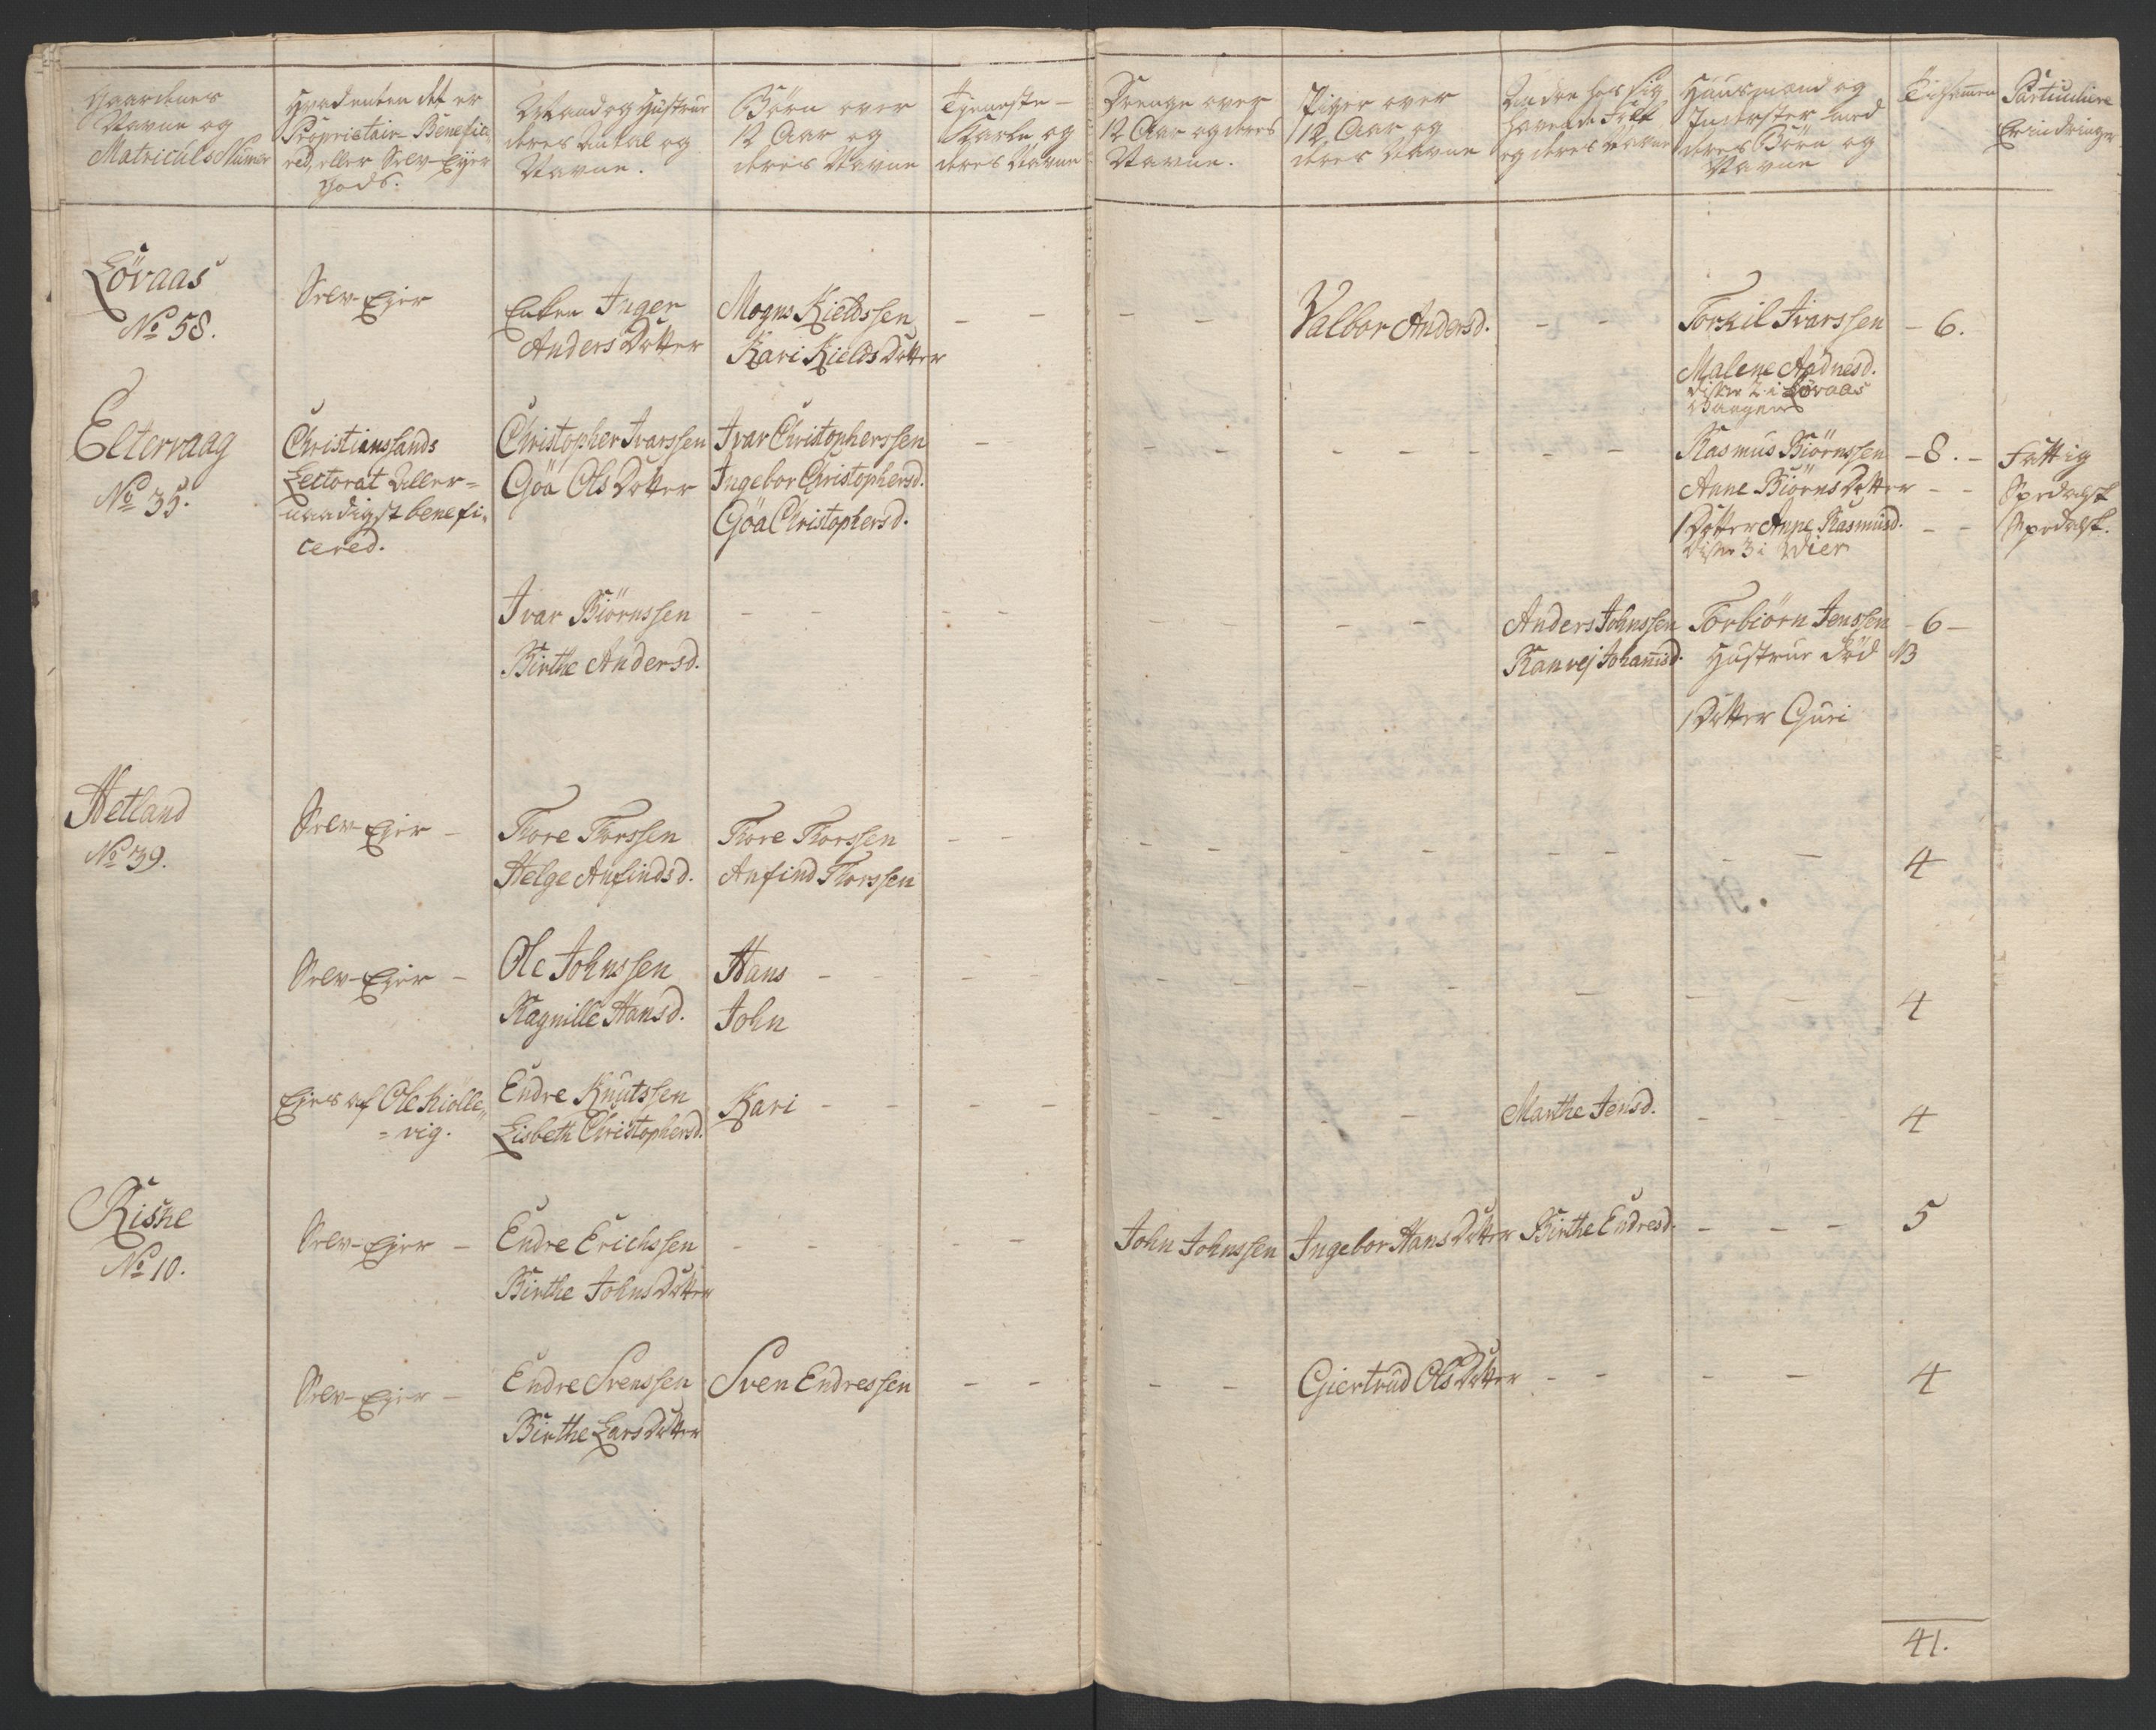 Gaardenes
Navne og
Matriculs Numer
Hvad enten det er
Proprietair Benefici-
red, eller Selv-Ejer
Gods.
Mand og Hustrue
deres Antal og
Navne.
Börn over
12 Aar og
deres Navne
Tjeneste-
Karle og
deres Navne
Drenge over
12 Aar og deres
Navne.
Piger over
12 Aar og
deres Navne
Andre hos sig
havende Folk
og deres Navne
Huusmænd og
Inderster med
deres Börn og
Navne
Tilsamen
Particulaire
Erindringer
Lövaas
No 58.
Selv-Ejer
Enken Inger
Anders Dotter
Mogns Kieldssen
Kari Kields Dotter
Valbor Andersd.
Torkil Ivarssen
Malene Aadnesd.
disse 2 i Lövaas
Vaagen
- 6.
Eltervaag
No 35.
Christianssands
Lectorat Aller=
naadigst benefi-
cered.
Christopher Ivarssen
Göa Ols Dotter
Ivar Christopherssen
Ingebor Christophersd.
Göa Christophersd.
Rasmus Biörnssen
Anne Biörns Dotter
1 Dotter Anne Rasmusd.
disse 3 i Wier
- 8. -
Fattig
Spedalsk
Spedalsk.
Ivar Biörnssen
Birthe Andersd.
Anders Johnssen
Ranvej Johannisd.
Torbiörn Jenssen
Hustrue död
1 Dotter Guri
- 6 -
NB
Hetland
No 39.
Selv-Ejer -
Thore Thorssen
Helge Anfindsd.
Thore Thorssen
Anfind Thorssen
4
Selv-Ejer -
Ole Johnssen
Ragnille Hansd.
Hans
John
4
Ejes af Ole Kiölle-
= vig.
Endre Knutssen
Lisbeth Christophersd.
Kari
Marthe Jensd.
4
Riske
No 10.
Selv-Ejer -
Endre Erichssen
Birthe Johns Dotter
John Johnssen
Ingebor Hans Dotter
Birthe Endresd.
5
Selv-Ejer -
Endre Svenssen
Birthe Lars Dotter
Sven Endressen
Gjertrud Ols Dotter
4
41.